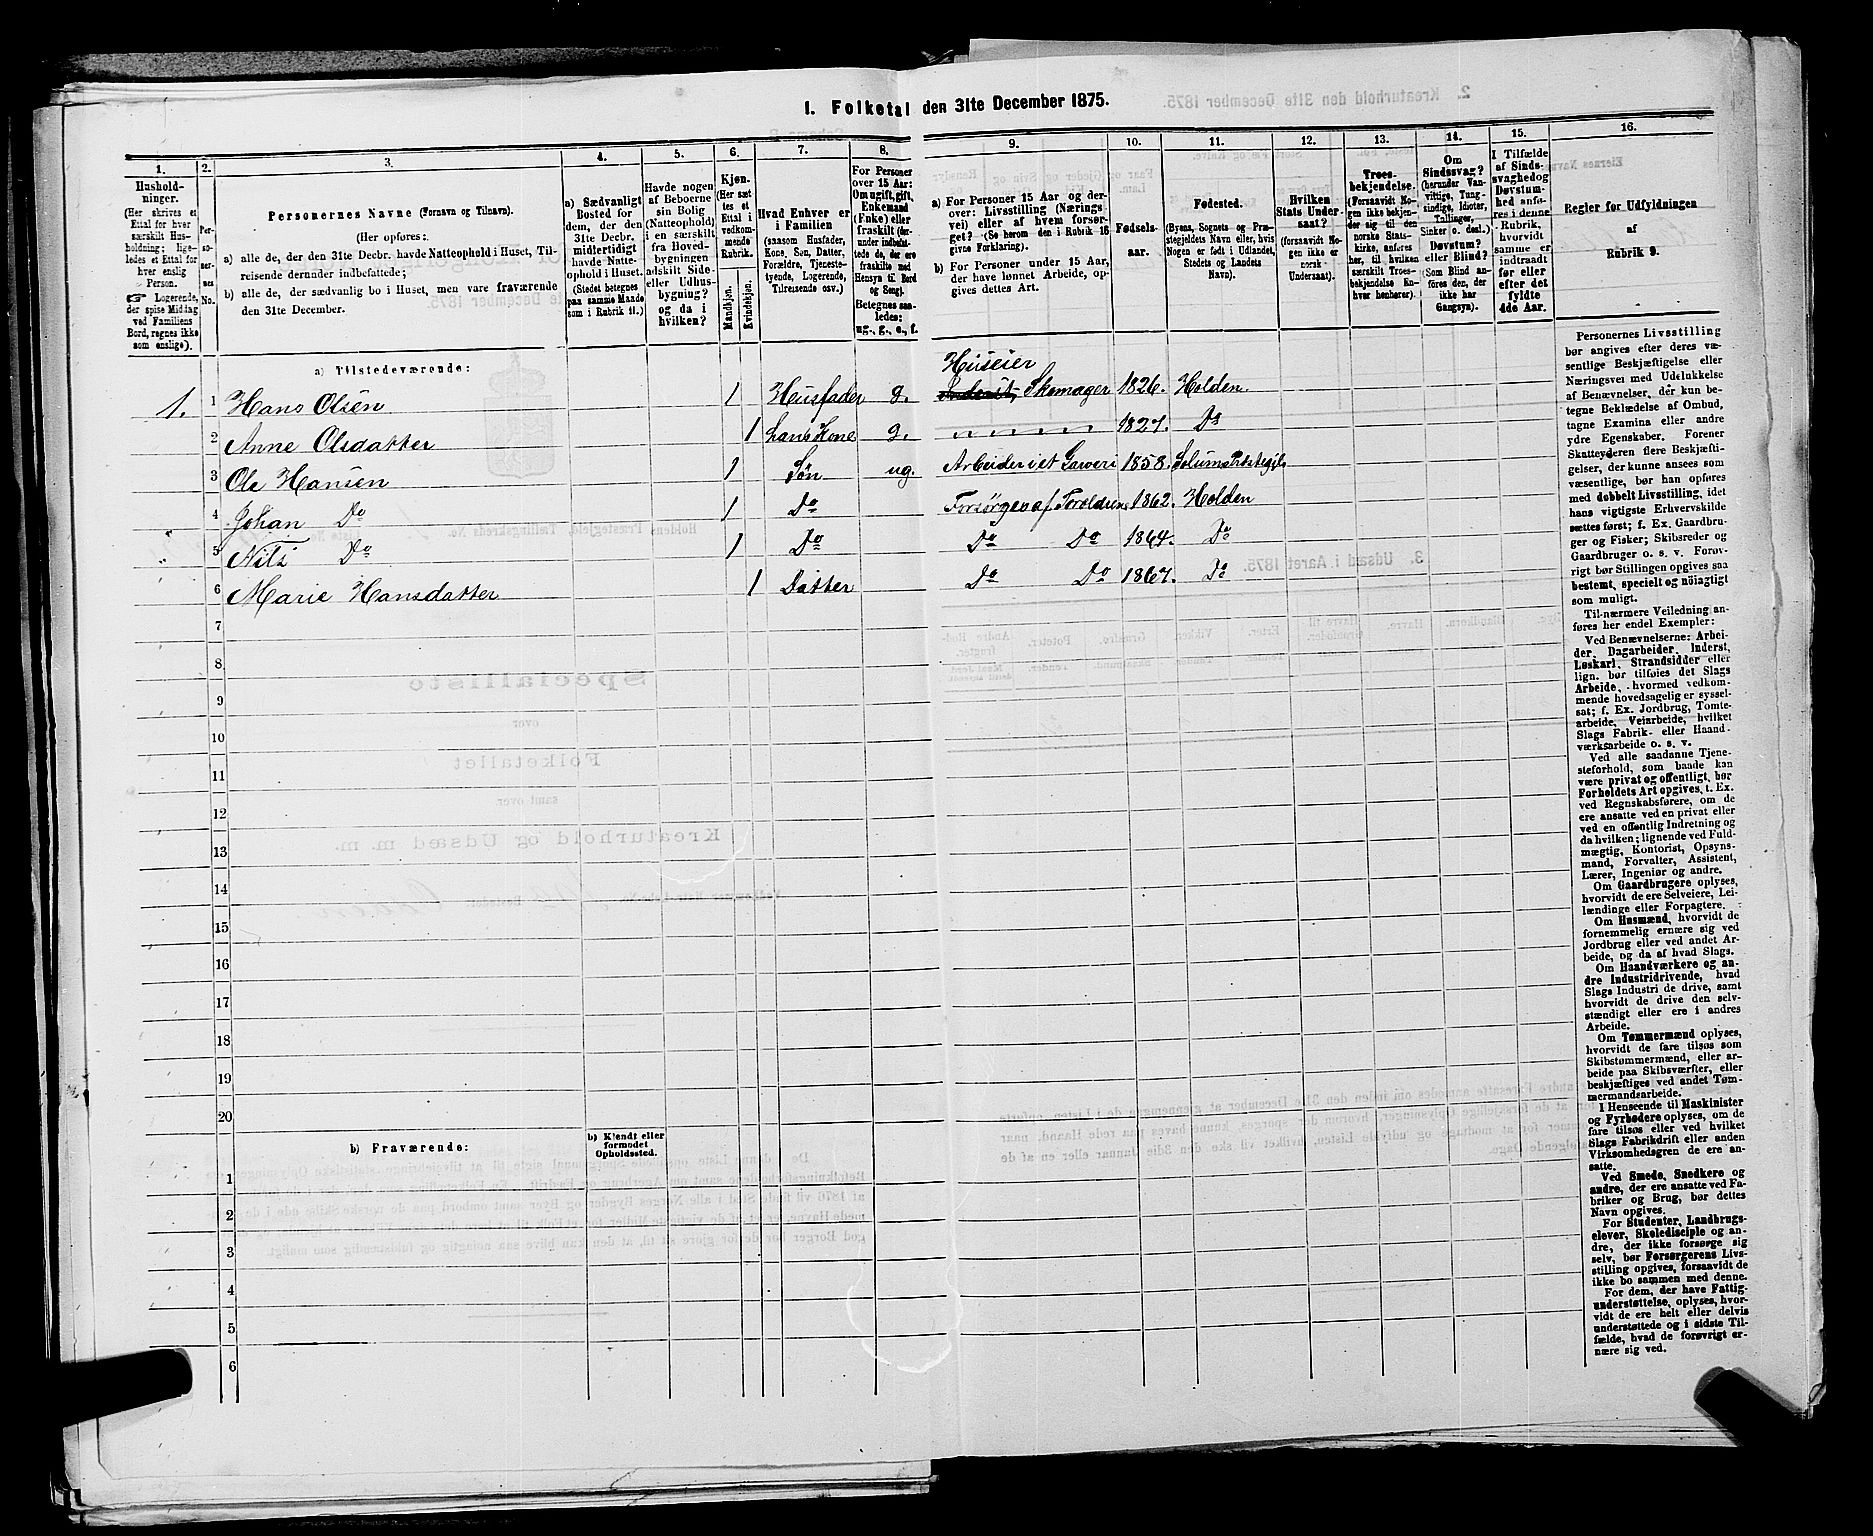 1. Folketal den 31te December 1875.
1. 2. 3. 4. 5. 6. 7. 8. 9. 10. 11. 12. 13. 14. 15. 16.
Hushold-
ninger.
(Her skrives et
Ettal for hver
særskilt Hus-
holdning; lige-
ledes et Ettal for
hver enslig
Person.
☞ Logerende,
der spise Middag
ved Familiens
Bord, regnes ikke
som enslige).
Per-
so-
ner-
nes
No.
Personernes Navne (Fornavn og Tilnavn).
(Her opføres:
a) alle de, der den 31te Decbr. havde Natteophold i Huset, Til-
reisende derunder indbefattede;
b) alle de, der sædvanlig bo i Huset, men vare fraværende
den 31te December.
a) Sædvanligt
Bosted for
dem, der den
31te Decbr.
midlertidigt
havde Natte-
ophold i Huset.
(Stedet betegnes
paa samme Maade
som i Rubrik 11.)
Havde nogen
af Beboerne
sin Bolig
(Natteophold)
i en særskilt
fra Hoved-
bygningen
adskilt Side-
eller Udhus-
bygning?
og da i
hvilken?
Kjøn.
(Her sæt-
tes et
Ettal i
vedkom-
mende
Rubrik.
Mandkjøn. Kvindekjøn.
Hvad Enhver er
i Familien
(saasom Husfader,
Kone, Søn, Datter,
Forældre, Tjeneste-
tyende, Logerende,
Tilreisende osv.)
For Personer
over 15 Aar:
Om ugift, gift,
Enkemand
(Enke) eller
fraskilt (der-
under indbefat-
tede de, der ere
fraskilte med
Hensyn til Bord
og Seng).
Betegnes saa-
ledes:
ug., g., e., f.
a) For Personer 15 Aar og der-
over: Livsstilling (Nærings-
vei) eller af hvem forsør-
get? (Se herom den i Rubrik 16
givne Forklaring).
b) For Personer under 15 Aar,
der have lønnet Arbeide, op-
gives dettes Art.
Fødsels-
aar.
Fødested.
(Byens, Sognets og Præ-
stegjeldets Navn eller, hvis
Nogen er født i Udlandet,
Stedets og Landets
Navn).
Hvilken
Stats Under-
saat?
(forsaavidt No-
gen ikke er
norsk
Undersaat).
Troes-
bekjendelse.
(Forsaavidt No-
gen ikke bekjen-
der sig til den
norske Stats-
kirke, anføres
her, til hvilken
særskilt Troes-
bekjendelse En-
hver henhører).
Om
Sindssvag?
(herunder Van-
vittige, Tung-
sindige, Idioter,
Tullinger,
Sinker o. desl.)
Døvstum?
eller Blind?
(Som Blind an-
føres den, der
ikke har
Gangsyn).
I Tilfælde
af Sinds-
svaghed og
Døvstum-
hed anfø-
res i denne
Rubrik,
hvorvidt
samme er
indtraadt
før eller
efter det
fyldte
4de Aar.
Regler for Udfyldningen
af
Rubrik 9.
a) Tilstedeværende:
Huseier
1. 1 Hans Olsen 1 Husfader g. Inderst, Skomager 1826. Holden.
2 Anne Olsdatter 1 hans Kone g. " " " " 1827. Do
3 Ole Hansen 1 Søn ug. Arbeider i et Garveri 1858. Solums Præstegjeld
4 Johan Do 1 Do Forsørges af Forældrene 1862. Holden
5 Nils Do 1 Do Do Do 1864. Do
6 Marie Hansdatter 1 Datter Do Do 1867. Do
7
8
9
10
11
12
13
14
15
16
17
18
19
20
b) Fraværende:
b) Kjendt eller
formodet
Opholdssted.
1
2
3
4
5
6
Personernes Livsstilling
bør angives efter deres væ-
sentlige Beskjæftigelse eller
Næringsvei med Udelukkelse
af Benævnelser, der kun be-
tegne Beklædelse af Ombud,
tagne Examina eller andre
ydre Egenskaber. Forener
Skatteyderen flere Beskjæfti-
gelser, der kunne ansees som
væsentlige, bør han opføres
med dobbelt Livsstilling, idet
hans vigtigste Erhvervskilde
sættes først; f. Ex. Gaardbru-
ger og Fisker; Skibsreder og
Gaardbruger o. s. v. Forøv-
rigt bør Stillingen opgives saa
bestemt, specielt og nöiagtigt
som muligt.
Til nærmere Veiledning an-
føres her endel Exempler:
Ved Benævnelserne: Arbei-
der, Dagarbeider, Inderst,
Løskarl, Strandsidder eller
lign. bør tilføies det Slags
Arbeide, hvormed vedkom-
mende hovedsagelig er syssel-
sat; f. Ex. Jordbrug, Tomte-
arbeide, Veiarbeide, hvilket
Slags Fabrik- eller Haand-
værksarbeide o. s. v.
Ved alle saadanne Tjene-
steforhold, som baade kan
være privat og offentligt, bør
Forholdets Art opgives, t. Ex.
ved Regnskabsførere, om de
ere ansatte ved en privat eller
ved en offentlig Indretning og
da hvilken; lignende ved Fuld-
mægtig, Kontorist, Opsyns-
mand, Forvalter, Assistent,
Lærer, Ingeniør og andre.
Om Gaardbrugere oplyses,
hvorvidt de ere Selveiere, Lei-
lændinge eller Forpagtere.
Om Husmænd, hvorvidt de
fornemmelig ernære sig ved
Jordbrug eller ved andet Ar-
beide, og da af hvad Slags.
Om Haandværkere og an-
dre Industridrivende, hvad
Slags Industri de drive, samt
hvorvidt de drive den selv-
stændigt eller ere i andres
Arbeide.
Om Tømmermænd oplyses,
hvorvidt de fare tilsøs som
Skibstømmermænd, eller ar-
beide paa Skibsværfter, eller
beskjæftiges ved andet Tøm-
mermandsarbeide.
I Henseende til Maskinister
og Fyrbødere oplyses, om de
fare tilsøs eller ved hvilket
Slags Fabrikdrift eller anden
Virksomhedsgren de ere an-
satte.
Ved Smede, Snedkere og
andre, der ere ansatte ved Fa-
briker og Brug, bør dettes
Navn opgives.
For Studenter, Landbrugs-
elever, Skoledisciple og an-
dre, der ikke forsørge sig
selv, bør Forsørgerens Livs-
stilling opgives, forsaavidt de
ikke bo sammen med denne.
For dem, der have Fattig-
understøttelse, oplyses, hvor-
vidt de ere helt eller delvis
understøttede og i sidste Til-
fælde, hvad de forøvrigt er-
nære sig ved.